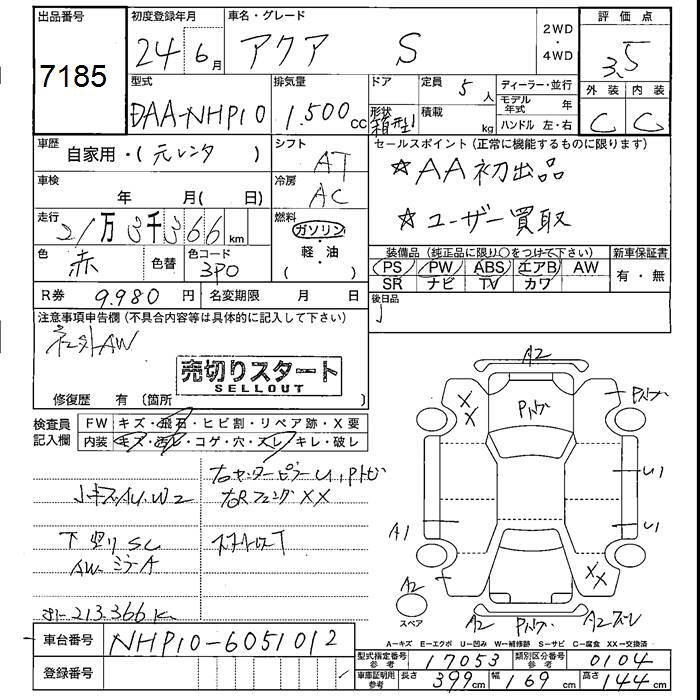 出品番号 初度登録年月 車名・グレード 2WD・4WD 評価点
7185 24年6月 アクア S 3.5
型式 排気量 ドア 定員 5人 ディーラー・並行 外装 内装
DAA-NHP10 1.500cc 形状 箱型 積載 kg モデル年式 年 C C
ハンドル 左・右
車歴 自家用・(元レンタ) シフト AT セールスポイント(正常に機能するものに限ります)
車検 年 月(日) 冷房 AC ☆AA初出品
走行 21万3千366km 燃料 ガソリン・軽・油( ) ☆ユーザー買取
色 赤 色替 色コード 3P0 装備品(純正品に限り○をつけて下さい) 新車保証書
PS PW ABS エアB AW 有・無
SR ナビ TV カワ
R券 9.980円 名変期限 月 日 後日品
注意事項申告欄(不具合内容等は具体的に記入して下さい)
売切りスタート
SELLOUT
修復歴 有(箇所
検査員記入欄 FW キズ・飛石・ヒビ割・リペア跡・X要
内装 キズ・汚レ・コゲ・穴・スレ・キレ・破レ
右センターピラーU1,
XX
SC
213.366K
A2
XX
U1
A1 U1
XX
A2
スペア A2 A2
A-キズ E-エクボ U-凹み W-補修跡 S-サビ C-腐食 XX-交換済
車台番号 NHP10-6051012
登録番号
型式指定番号参考 17053 類別区分番号参考 0104
車庫証明用参考 長さ 399cm 幅 169cm 高さ 144cm